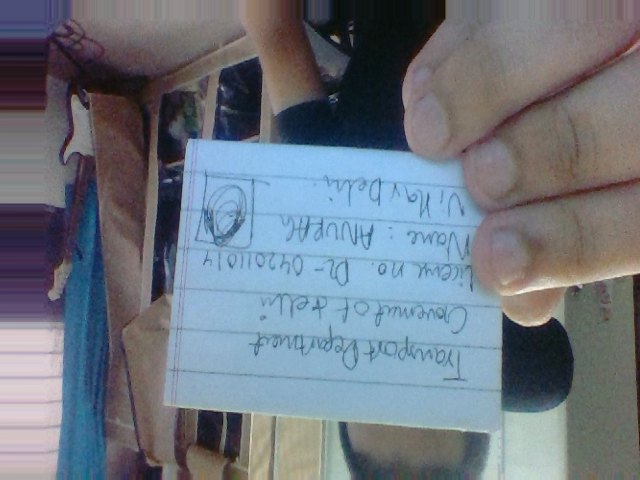 Transport Department
Government of delhi
License no. DL-042011014
Name : ANURAG
Vihar Delhi